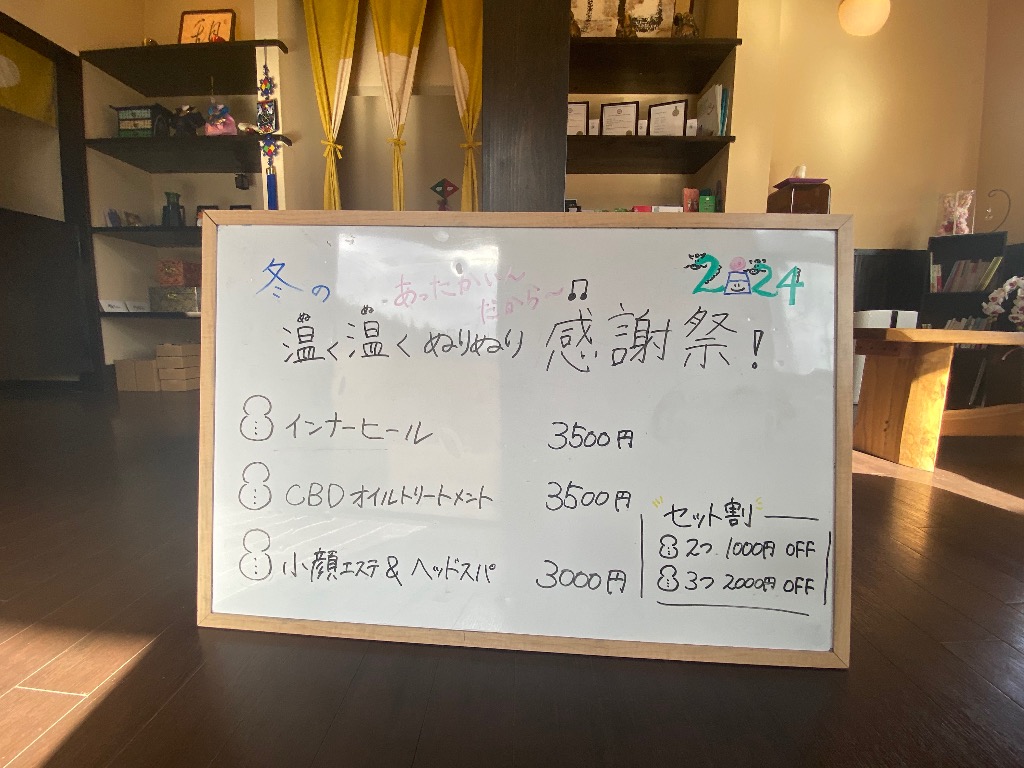 冬の
あったかい〜
だから〜♫
2024
温く温くぬりぬり 感謝祭!
ぬ ぬ
インナーヒール 3500円
CBDオイルトリートメント 3500円
小顔エステ&ヘッドスパ 3000円
セット割
2つ 1000円 OFF
3つ 2000円 OFF